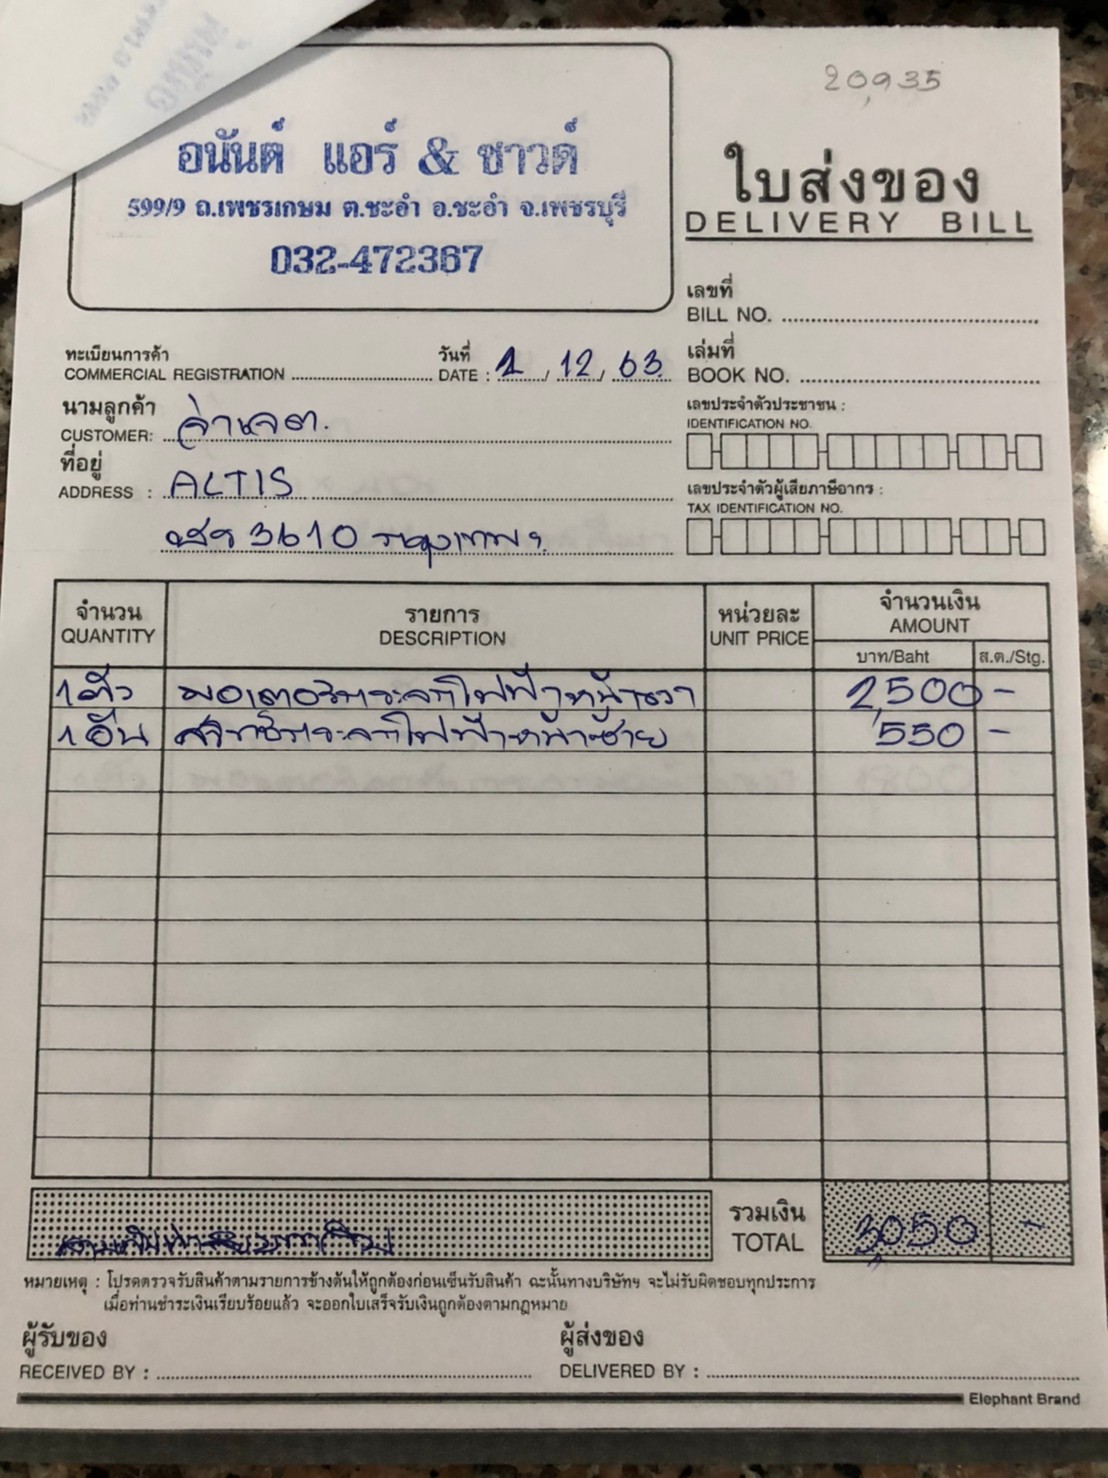 20,935
อนันต์ แอร์ & ซาวด์
599/9 ถ.เพชรเกษม ต.ชะอำ อ.ชะอำ จ.เพชรบุรี
032-472367
ใบส่งของ
DELIVERY BILL
เลขที่
BILL NO.
ทะเบียนการค้า
COMMERCIAL REGISTRATION
วันที่
DATE : 1, 12, 63
เล่มที่
BOOK NO.
นามลูกค้า
CUSTOMER:
ที่อยู่
ADDRESS : ALTIS
3610 กรุงเทพฯ
เลขประจำตัวประชาชน :
IDENTIFICATION NO.
เลขประจำตัวผู้เสียภาษีอากร :
TAX IDENTIFICATION NO.
จำนวน รายการ หน่วยละ จำนวนเงิน
QUANTITY DESCRIPTION UNIT PRICE AMOUNT
บาท/Baht ส.ต./Stg.
1 ตัว มอเตอร์กระจกไฟฟ้าหน้าขวา 2,500 -
1 อัน สวิทช์กระจกไฟฟ้าหน้าซ้าย 550 -
รวมเงิน
TOTAL 3,050 -
สามพันห้าสิบบาทถ้วน
หมายเหตุ : โปรดตรวจรับสินค้าตามรายการข้างต้นให้ถูกต้องก่อนเซ็นรับสินค้า ฉะนั้นทางบริษัทฯ จะไม่รับผิดชอบทุกประการ
เมื่อท่านชำระเงินเรียบร้อยแล้ว จะออกใบเสร็จรับเงินถูกต้องตามกฎหมาย
ผู้รับของ
RECEIVED BY :
ผู้ส่งของ
DELIVERED BY :
Elephant Brand